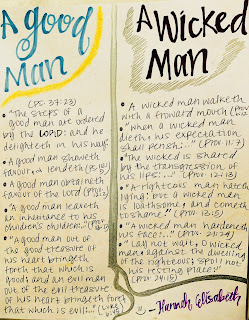 A good
Man
(PS. 37:23)
• "The steps of a
good man are ordered
by the LORD: and he
delighteth in his way."
• A good man sheweth
favour, & lendeth (PS. 112:5)
• A good man obtaineth
favour of the Lord (Prov. 12:2)
• "A good man leaveth
an inheritance to his
children's children..." (Prov. 13:22)
• "A good man out of
the good treasure of
his heart bringeth
forth that which is
good; and an evil man
out of the evil treasure
of his heart bringeth forth
that which is evil:..." (Luke 6:45)
A Wicked
Man
• A wicked man walketh
with a froward mouth (Prov. 6:12)
• "When a wicked man
dieth, his expectation
shall perish:..." (Prov. 11:7)
• "The wicked is snared
by the transgression of
his lips:..." (Prov. 12:13)
• "A righteous man hateth
lying: but a wicked man
is loathsome, and cometh
to shame." (Prov. 13:5)
• "A wicked man hardeneth
his face:..." (Prov. 21:29)
• "Lay not wait, O wicked
man, against the dwelling
of the righteous; spoil not
his resting place:"
(Prov. 24:15)
- Hannah Elisabeth